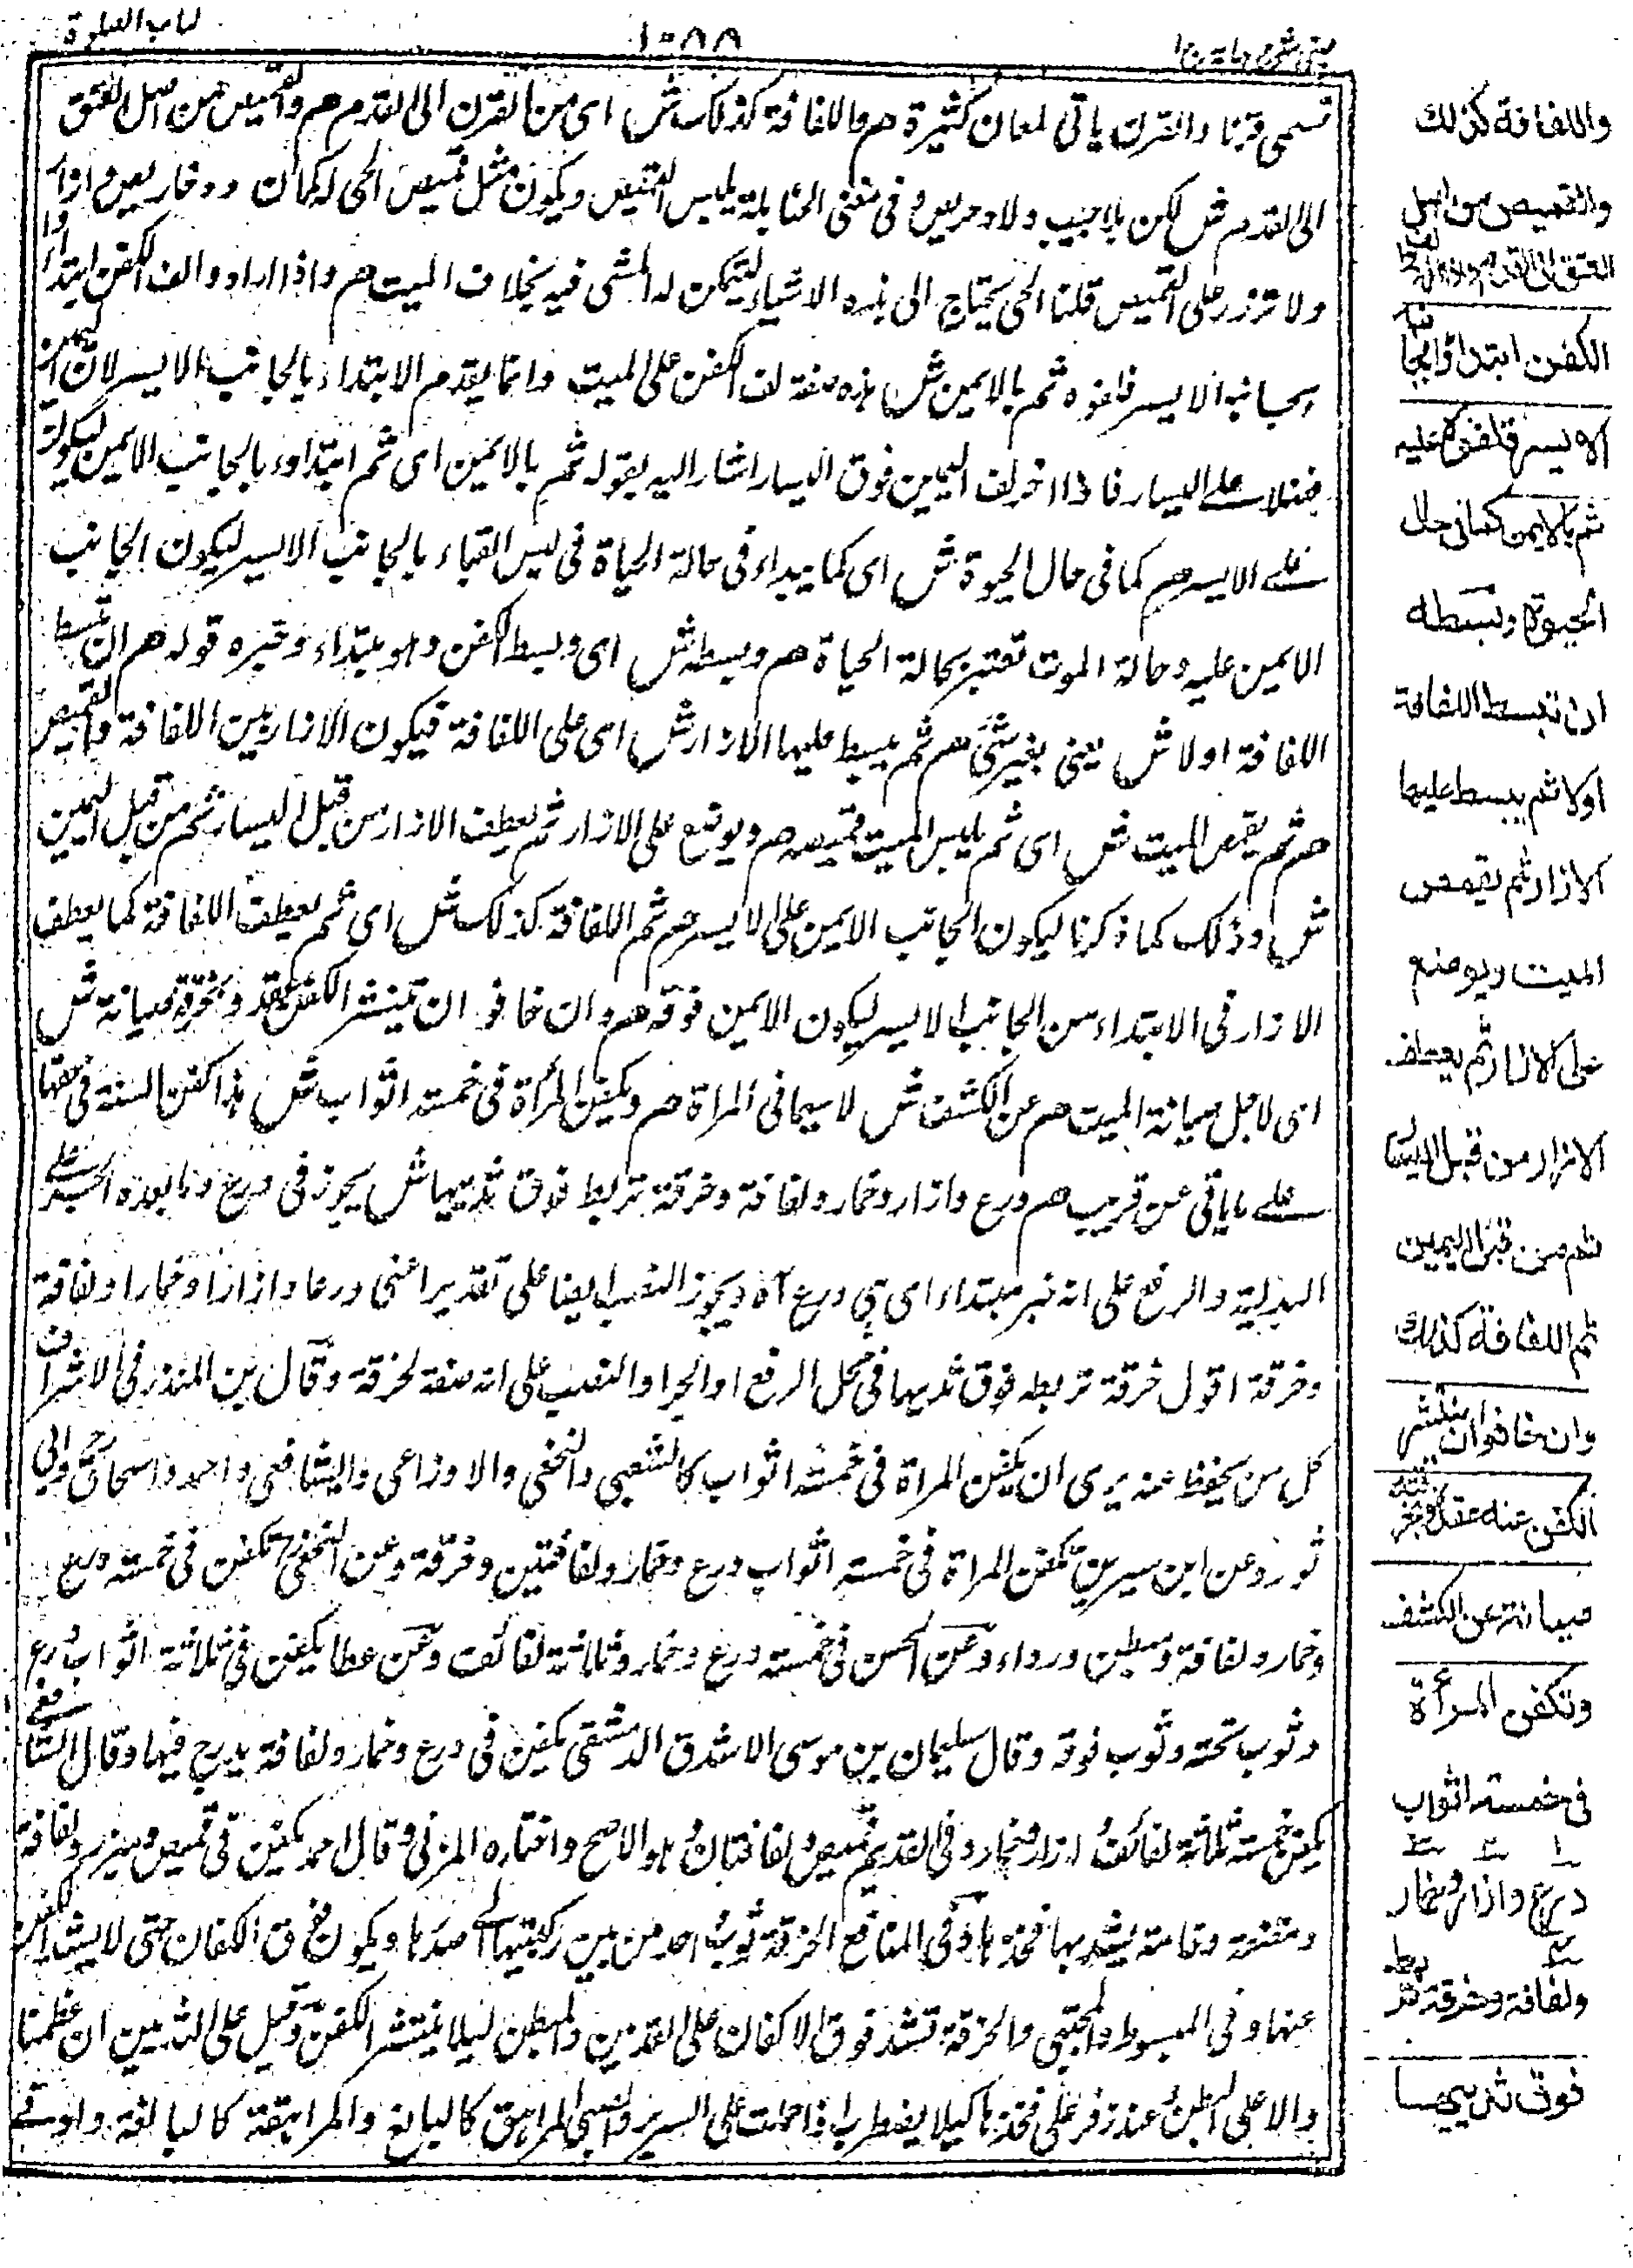 كتاب الصلوة
١٠٨٨
عيني شرح هداية ج ١
تسمى قرنا والقرن ياتى لمعان كثيرة هم واللفافة كذلك ش اى من القرن الى القدم هم والقميص من اصل العنق
الى القدم ش لكن بلا جيب ولا دخريص و فى مغنى الحنابلة يلبس القميص ويكون مثل قميص الحى له كمان ودخاريص وازرار
ولا تزرر على القميص قلنا الحى يحتاج الى هذه الاشياء ليتمكن له المشى فيه بخلاف الميت هم واذا ارادوا لف الكفن ابتدأوا
بجانبه الايسر فلفوه ثم بالايمن ش هذه صفة لف الكفن على الميت وانما يقدم الابتداء بالجانب الايسر لان لليمين
فضلا على اليسار فاذا اخر لف اليمين فوق اليسار اشار اليه بقوله ثم بالايمن اى ثم ابتداوء بالجانب الايمن ليكون
على الايسر هم كما فى حال الحيوة ش اى كما يبداء فى حالة الحياة فى لبس القباء بالجانب الايسر ليكون الجانب
الايمن عليه وحالة الموت تعتبر بحالة الحياة هم وبسطه ش اى وبسط الكفن وهو مبتداء وخبره قوله هم ان تبسط
اللفافة اولا ش يعنى بغير شئ هم ثم يبسط عليها الازار ش اى على اللفافة فيكون الازار بين اللفافة والقميص
هم ثم يقمص الميت ش اى ثم يلبس الميت قميصه هم ويوضع على الازار ثم يعطف الازار من قبل اليسار ثم من قبل اليمين
ش وذلك كما ذكرنا ليكون الجانب الايمن على الايسر هم ثم اللفافة كذلك ش اى ثم يعطف اللفافة كما يعطف
الازار فى الابتداء من الجانب الايسر ليكون الايمن فوقه هم وان خافوا ان ينتشر الكفن عقدوه بخرقة صيانة ش
اى لاجل صيانة الميت هم عن الكشف ش لا سيما فى المراة هم وتكفن المرأة فى خمسة اثواب ش هذا كفن السنة فى حقها
على ما ياتى عن قريب هم درع وازار وخمار ولفافة وخرقة تربط فوق ثدييها ش يجوز فى درع وما بعده الجر على
البدلية والرفع على انه خبر مبتداء اى هى درع آه ويجوز النصب ايضا على تقدير اعنى درعا وازارا وخمارا ولفافة
وخرقة اقول خرقة تربطه فوق ثديها فى محل الرفع او الجر او النصب على انه صفة لخرقة وقال بن المنذر فى الاشراف
كل من يحفظ عنه يرى ان يكفن المراة فى خمسة اثواب كالشعبى والنخعى والاوزاعى والشافعى واحمد واسحاق وابى
ثور وعن ابن سيرين تكفن المراة فى خمسة اثواب درع وخمار ولفافتين وخرقة وعن النخعى تكفن فى خمسة درع
وخمار ولفافة ومبطن ورداء وعن الحسن فى خمسة درع وخمار وثلاثة لفائف وعن عطا يكفن فى ثلاثة اثواب درع
وثوب تحته وثوب فوقه وقال سليمان بن موسى الاشدق الدمشقى يكفن فى درع وخمار ولفافة يدرج فيها وقال الشافعى
يكفن خمسة ثلاثة لفائف ازار وخمار وفى القديم قميص ولفافتان وهو الاصح واختاره المزنى وقال احمد يكفن فى قميص وميزر ولفافة
ومقنعة وخامسة يشد بها فخذها وفى المنافع الخرقة ثوب احد من بين ركبتيها الى صدرها ويكون فوق الاكفان حتى لا ينتشر الكفن
عنها وفى المبسوط والمجتبى والخرقة تشد فوق الاكفان على القدمين والبطن ليلا ينتشر الكفن وقيل على الثديين ان عظمتا
والا على البطن وعند زفر على فخذها كيلا يضطرب اذا حملت على السرير والصبى المراهق كالبالغ والمراهقة كالبالغة وادنى
واللفافة كذلك
والقميص من اصل
العنق الى القدم واذا ارادوا لف
الكفن ابتداؤا بجانبه
الايسر فلفوه عليه
ثم بالايمن كما فى حال
الحيوة وبسطه
ان تبسط اللفافة
اولا ثم يبسط عليها
الازار ثم يقمص
الميت ويوضع
على الازار ثم يعطف
الازار من قبل اليسار
ثم من قبل اليمين
ثم اللفافة كذلك
وان خافوا ان ينتشر
الكفن عنه عقدوه بخرقة
صيانة عن الكشف
وتكفن المرأة
فى خمسة اثواب
درع وازار وخمار
ولفافة وخرقة تربط
فوق ثدييها